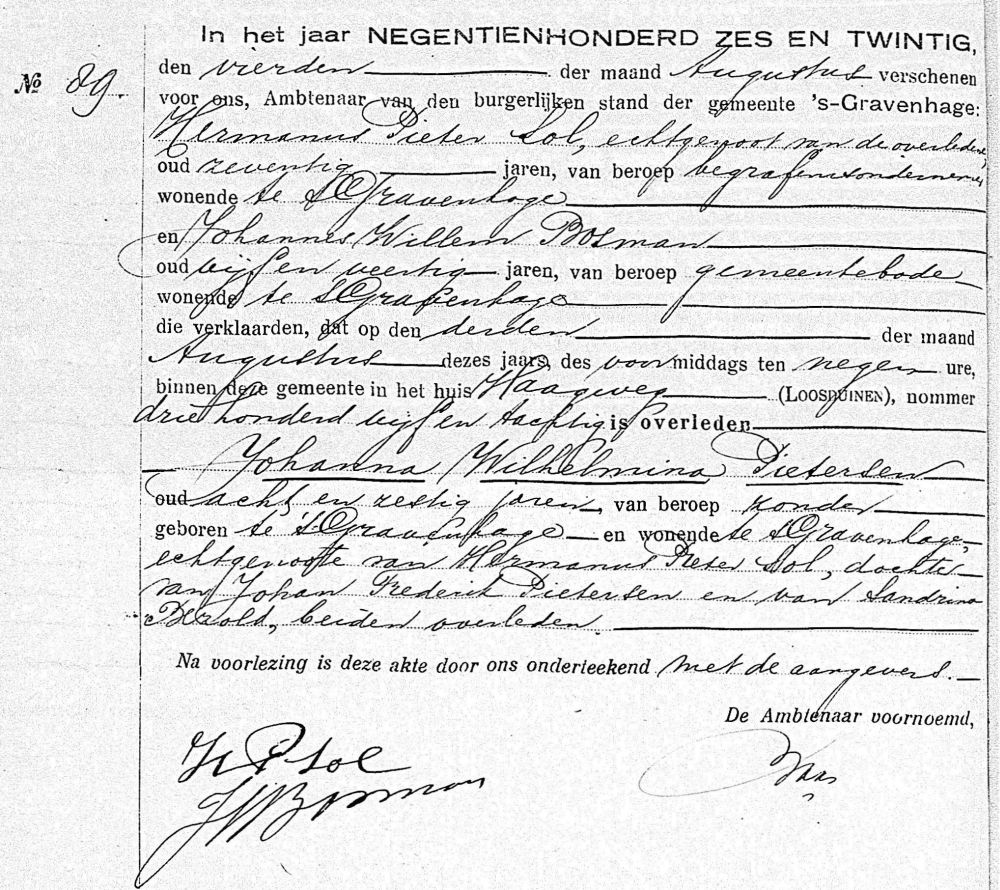 In het jaar NEGENTIENHONDERD ZES EN TWINTIG,
№ 89.
den vierden der maand Augustus verschenen
voor ons, Ambtenaar van den burgerlijken stand der gemeente 's-Gravenhage:
Hermanus Pieter Sol, echtgenoot van de overledene,
oud zeventig jaren, van beroep begrafenisondernemer
wonende te 's Gravenhage
en Johannes Willem Bosman
oud vijf en veertig jaren, van beroep gemeentebode
wonende te 's Gravenhage
die verklaarden, dat op den derden der maand
Augustus dezes jaars, des voormiddags ten negen ure,
binnen deze gemeente in het huis Haagweg (LOOSDUINEN), nommer
driehonderd vijf en tachtig is overleden
Johanna Wilhelmina Pietersen
oud acht en zestig jaren, van beroep zonder
geboren te 's Gravenhage en wonende te 's Gravenhage,
echtgenoote van Hermanus Pieter Sol, dochter
van Johan Frederik Pietersen en van Sandrina
Berold, beiden overleden.
Na voorlezing is deze akte door ons onderteekend met de aangevers.
De Ambtenaar voornoemd,
H P Sol
J W Bosman